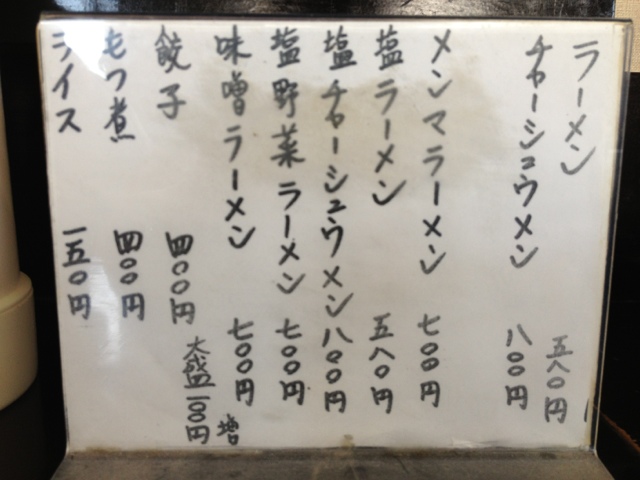 ラーメン 五八〇円
チャーシュウメン 八〇〇円
メンマラーメン 七〇〇円
塩ラーメン 五八〇円
塩チャーシュウメン 八〇〇円
塩野菜ラーメン 七〇〇円
味噌ラーメン 七〇〇円
大盛一〇〇円増
餃子 四〇〇円
もつ煮 四〇〇円
ライス 一五〇円